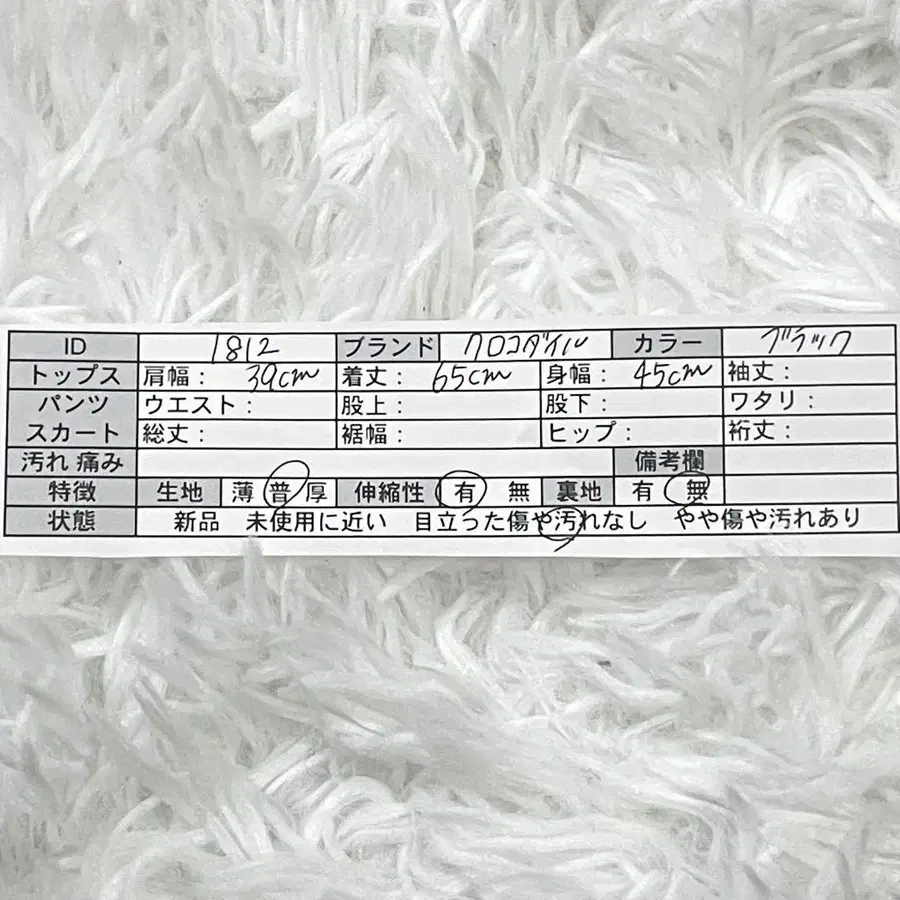 ID 1812 ブランド クロコダイル カラー ブラック
トップス 肩幅： 39cm 着丈： 65cm 身幅： 45cm 袖丈：
パンツ ウエスト： 股上： 股下： ワタリ：
スカート 総丈： 裾幅： ヒップ： 裄丈：
汚れ 痛み 備考欄
特徴 生地 薄 普 厚 伸縮性 有 無 裏地 有 無
状態 新品 未使用に近い 目立った傷や汚れなし やや傷や汚れあり